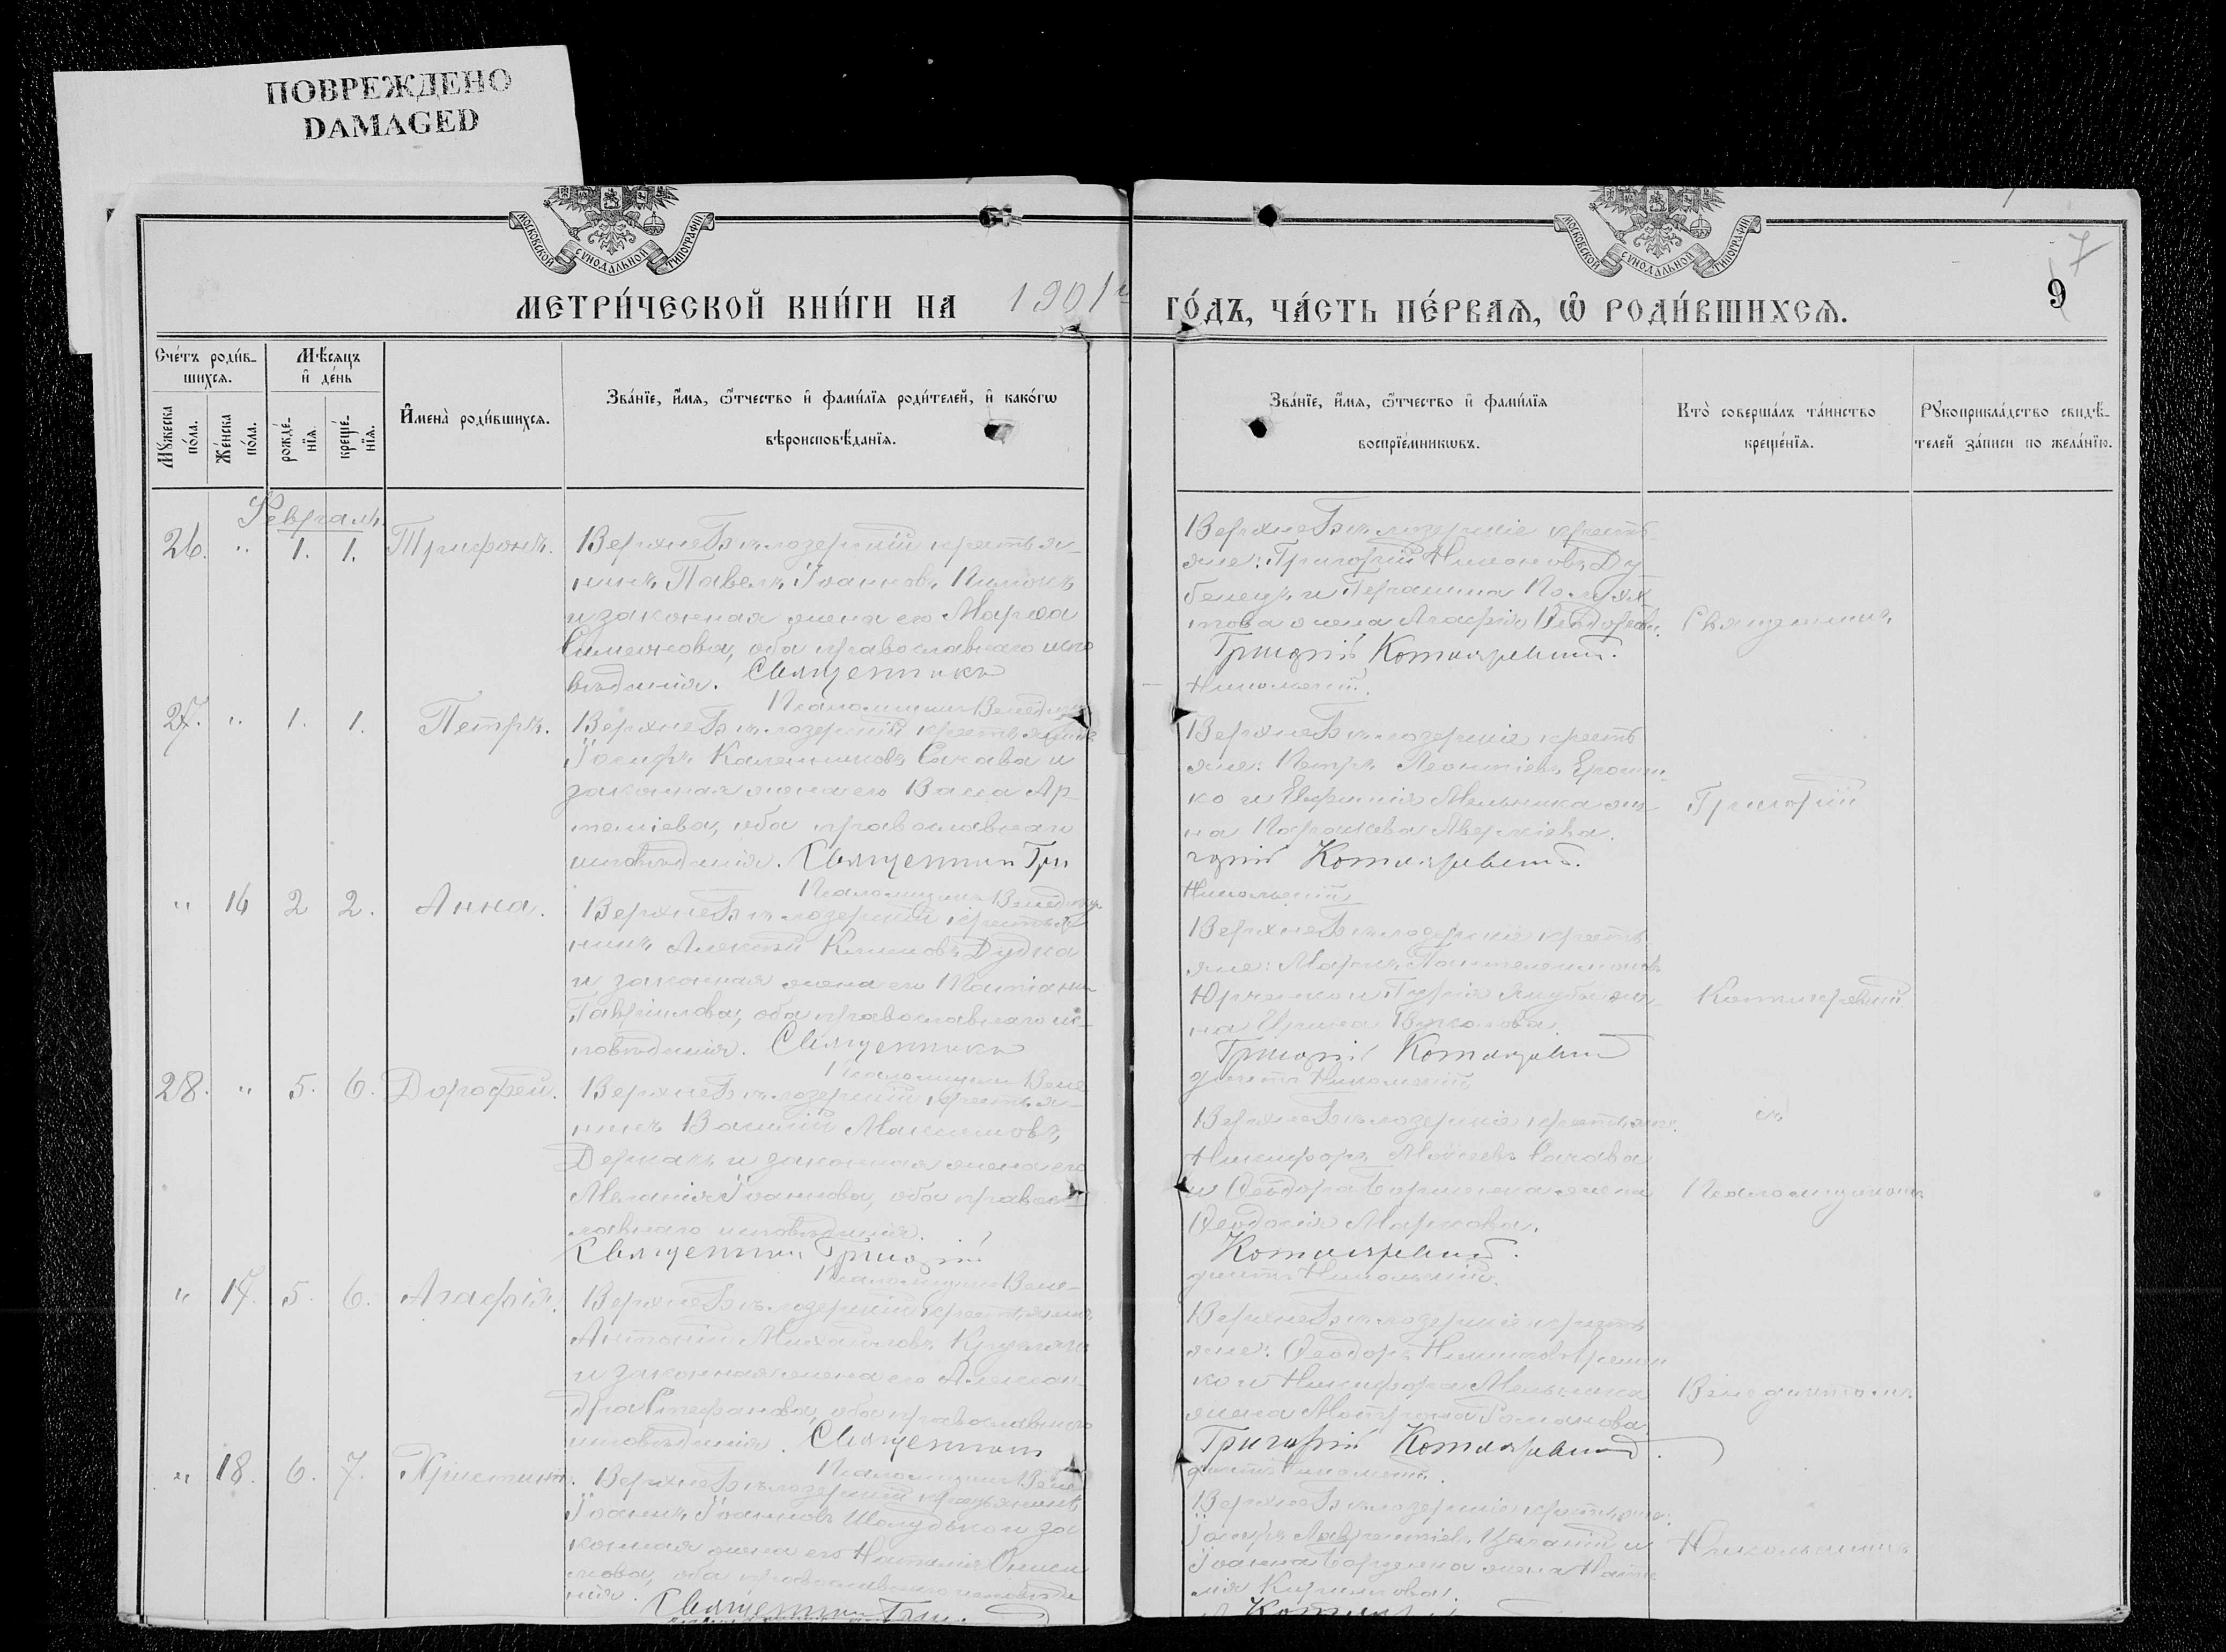 ПОВРЕЖДЕНО
DAMAGED
МОСКОВСКОЙ СУНОДАЛЬНОЙ ТИПОГРАФИ
МОСКОВСКОЙ СУНОДАЛЬНОЙ ТИПОГРАФИ
7
9
МЕТРИ́ЧЕСКОЙ КНИ́ГИ НА 1901 ГО́ДЪ, ЧА́СТЬ ПЕ́РВАѦ, Ѡ҆ РОДИ́ВШИХСѦ.
Сче́тъ роди́в-
шихсѧ.
Мꙋ́жеска
по́ла.
Же́нска
по́ла.
Мѣ́сѧцъ
и҆ де́нь
рожде́-
нїѧ.
креще́-
нїѧ.
И҆мена̀ роди́вшихсѧ.
Зва́нїе, и҆́мѧ, ѻ҆́тчество и҆ фами́лїѧ роди́телей, и҆ како́гѡ
вѣроисповѣ́данїѧ.
Зва́нїе, и҆́мѧ, ѻ҆́тчество и҆ фами́лїѧ
воспрїе́мникѡвъ.
Кто̀ соверша́лъ та́инство
креще́нїѧ.
Рꙋкоприкла́дство свидѣ́-
телей за́писи по жела́нїю.
Февраль
26. " 1. 1. Трифонъ.
ВерхнеБѣлозерскій крестья-
нинъ Павелъ Іоанновъ
и законная жена его Марѳа
Симеонова, оба православнаго испо
вѣданія. Священникъ
ВерхнеБѣлозерскіе кресть
яне: Григорій Никоновъ Ду
бенецъ и Герасима
жена Агафія
Григорій Котляревскій.
Никольскій.
Священникъ
27. " 1. 1. Петръ.
Псаломщикъ Венедик
ВерхнеБѣлозерскій крестьянинъ
Іосифъ Калинниковъ Сакава и
законная жена его Васса Ар-
теміева, оба православнаго
исповѣданія. Священникъ Гри
ВерхнеБѣлозерскіе кресть
яне: Петръ Леонтіевъ
ко и Евфимія Мельника же-
на Параскева Аверкіева.
горій Котляревскій.
Никольскій
Григорій
" 16 2 2. Анна.
Псаломщикъ Венедик
ВерхнеБѣлозерскій крестья
нинъ Алексѣй Климовъ Дудка
и законная жена его Татіана
Гавріилова, оба православнаго ис-
повѣданія. Священникъ
ВерхнеБѣлозерскіе кресть
яне: Маркъ Пантелеимоновъ
Юрченко и
на Ирина
Григорій Котляревскій
диктъ Никольскій
Котляревскій
28. " 5. 6. Дорофей.
Псаломщикъ Вене
ВерхнеБѣлозерскій крестья-
нинъ Василій Максимовъ
Держакъ и законная жена его
Меланія Іоаннова, оба правос
лавнаго исповѣданія.
Священникъ Григорій
ВерхнеБѣлозерскіе крестьяне:
Никифоръ Моѵсеевъ Сакава
и Ѳеодора жена
Ѳеодосія Маркова.
Котляревскій.
диктъ Никольскій.
съ
Псаломщикомъ
" 17. 5. 6. Агафія.
Псаломщикъ Вене-
ВерхнеБѣлозерскій крестьянинъ
Антоній Михайловъ
и законная жена его Алексан-
дра Стефанова, оба православнаго
исповѣданія. Священникъ
ВерхнеБѣлозерскіе кресть
яне: Ѳеодоръ
ко и Никифора Мельника
жена Матрона Романова
Григорій Котляревскій.
диктъ Никольскій.
Венедиктомъ
" 18. 6. 7. Христина.
Псаломщикъ Вене
ВерхнеБѣлозерскій крестьянинъ
Іоаннъ Іоанновъ Шолудько и за
конная жена его НаталіяОниси
мова, оба православнаго исповѣда
нія. Священникъ Гри
ВерхнеБѣлозерскіе крестьяне:
Іосифъ Лаврентіевъ и
Іоанна жена Ната
лія Кириллова.
Никольскимъ